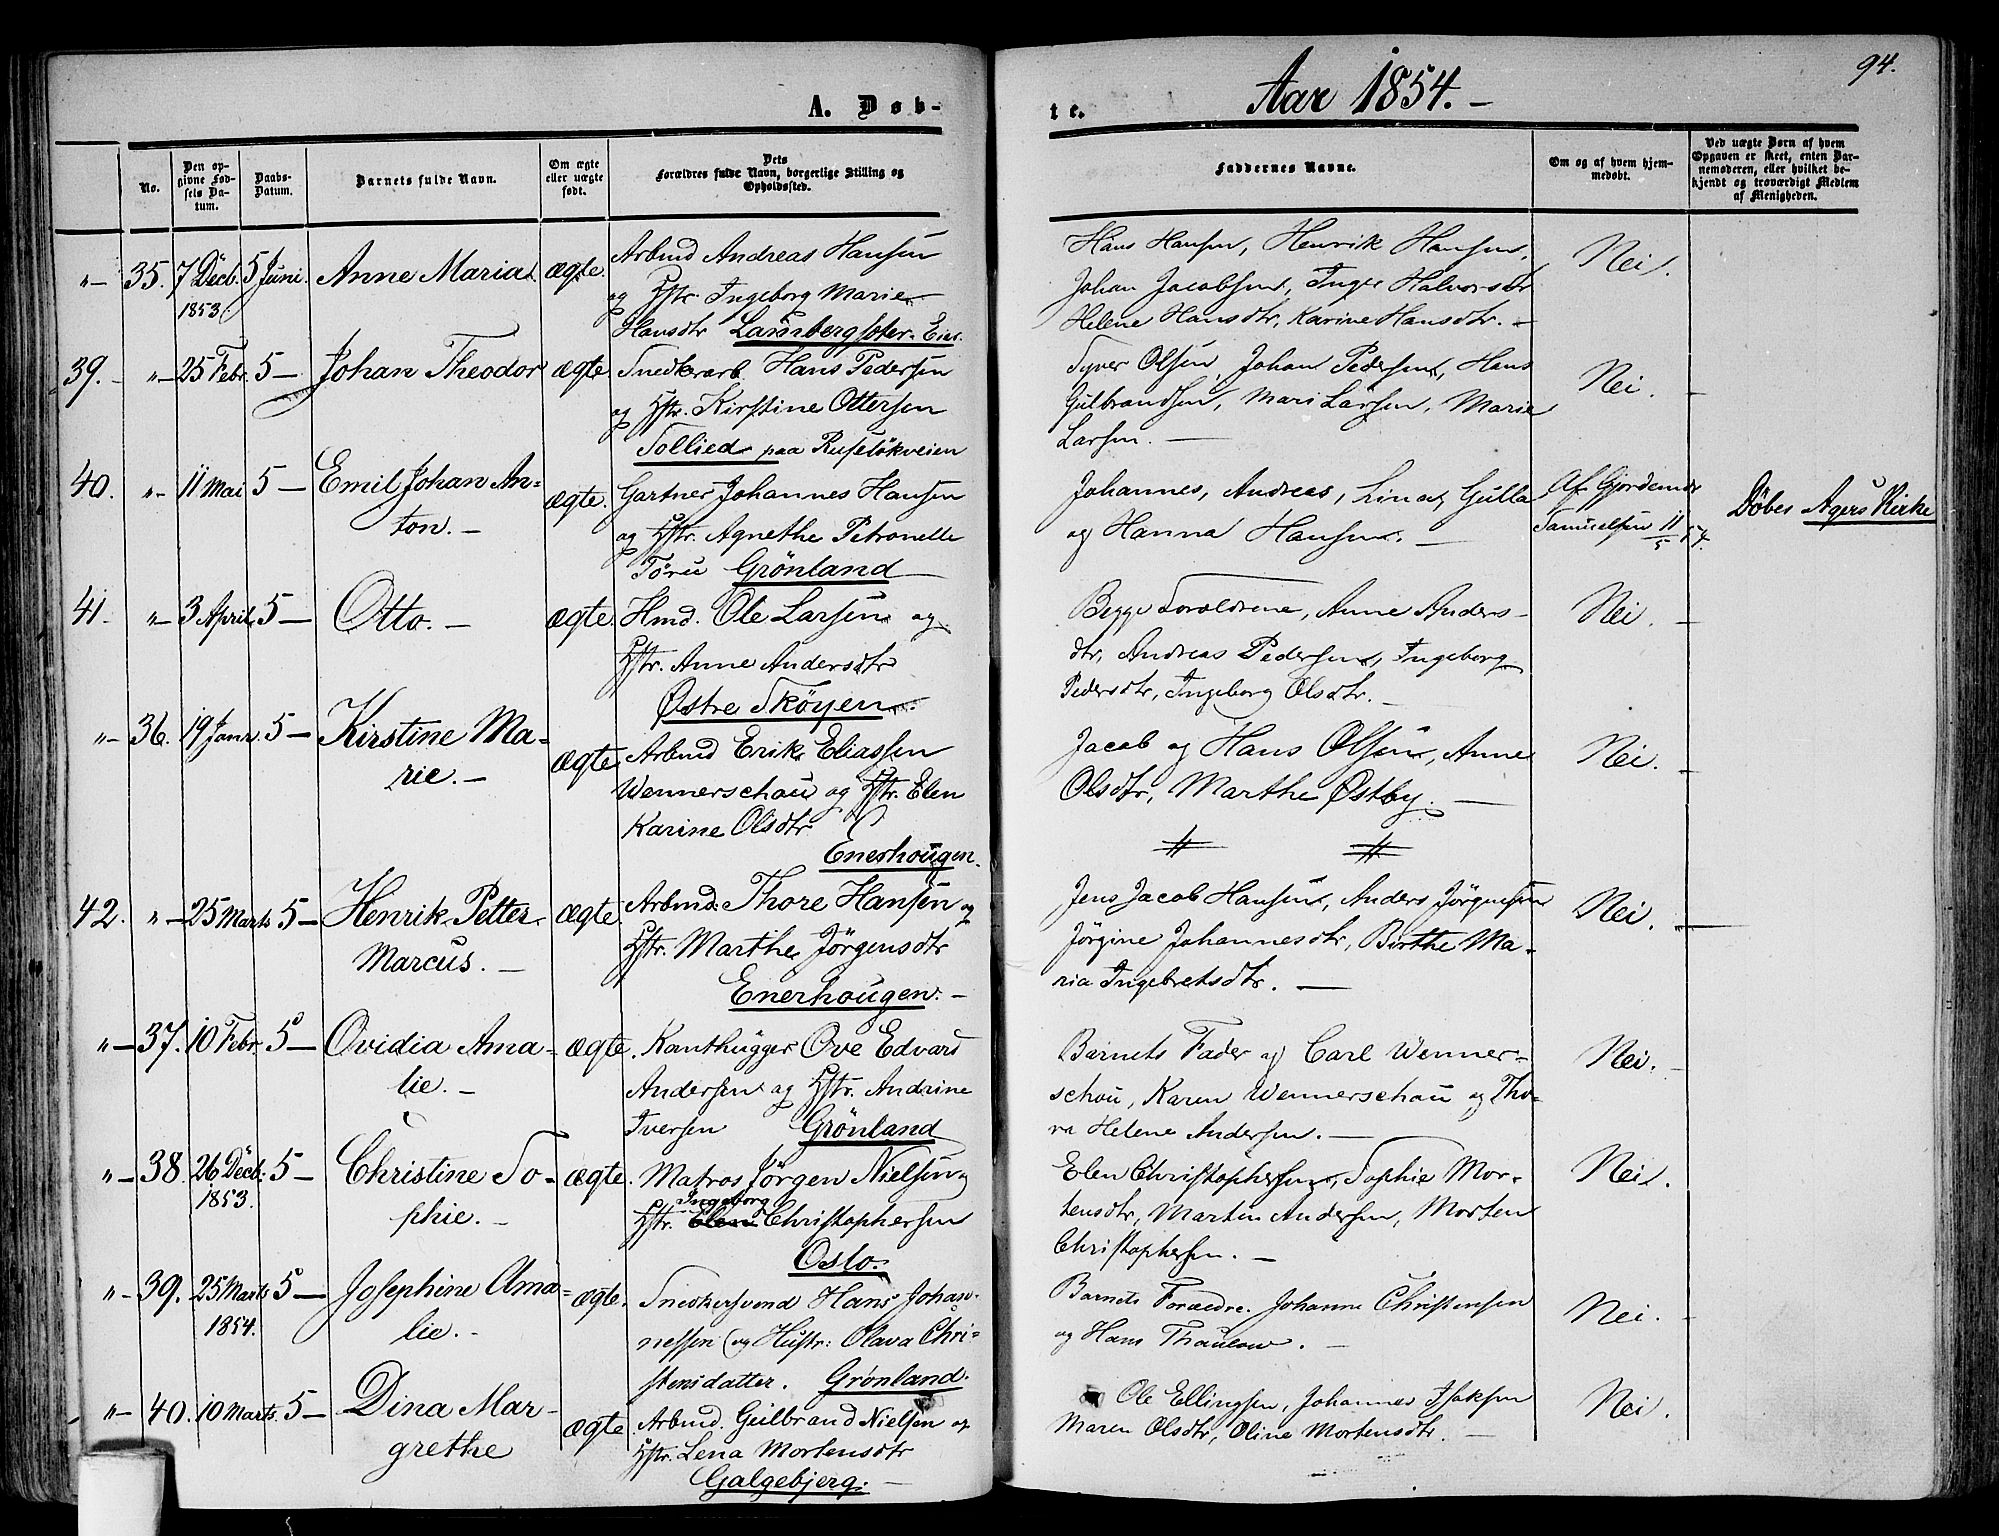 94.
A. Døb-
te.
Aar 1854.—
No.
Den op-
givne Fød-
sels Da-
tum.
Daabs-
Datum.
Barnets fulde Navn.
Om ægte
eller uægte
født.
Dets
Forældres fulde Navn, borgerlige Stilling og
Opholdssted.
Faddernes Navne.
Om og af hvem hjem-
medøbt.
Ved uægte Børn af hvem
Opgaven er skeet, enten Bar-
nemoderen, eller hvilket be-
kjendt og troværdigt Medlem
af Menigheden.
"— 35. 7 Decb. 5 Juni. Anne Maria. ægte. Arbmd Andreas Hansen
1853. og Hstr. Ingeborg Marie
Hansdtr Lambergsæter. Eier.
Hans Hansen, Henrik Hansen,
Johan Jacobsen, Inger Halvorsdtr
Helene Hansdtr, Karine Hansdtr. —
Nei.
39. "— 25 Febr. 5 — Johan Theodor ægte. Snedkerarb. Hans Pedersen
og Hstr. Kirstine Ottersen
Tollied paa Ruseløkveien
Syver Olsen, Johan Pedersen, Hans
Gulbrandsen, Mari Larsen, Marie
Larsen. —
Nei.
40. "- 11 Mai 5 — Emil Johan An-
ton. — ægte. Gartner Johannes Hansen
og Hstr. Agnethe Petronelle
Töru Grönland
Johannes, Andreas, Lina, Gulla
og Hanna Hansen. —
Af Gjordemdr
Samuelsen 11/5 54.
Döbes Agers Kirke
41. "— 3 April. 5 — Otto. — ægte. Hmd. Ole Larsen og
Hstr. Anne Andersdtr
Østre Sköyen.
Begge Foreldrene, Anne Anders-
dtr, Andreas Pedersen, Ingeborg
Pedersdtr, Ingeborg Olsdtr. —
Nei. —
"— 36. 19 Janr. 5 — Kirstine Ma-
rie. — ægte. Arbmd Erik Eliassen
Wennerschou og Hstr. Elen
Karine Olsdtr
Enerhougen.
Jacob og Hans Olsen, Anne
Olsdtr, Marthe Østby. —
Nei. —
42. "— 25 Marts 5 — Henrik Petter
Marcus. — ægte. Arbmd. Thore Hansen og
Hstr. Marthe Jörgensdtr
Enerhougen. —
Jens Jacob Hansen, Anders Jörgensen
Jörgine Johannesdtr, Birthe Ma-
ria Ingebretsdtr. —
Nei. —
"— 37. 10 Febr. 5 — Ovidia Ama-
lie. — ægte. Kanthugger Ove Edvard
Andersen og Hstr. Andrine
Iversen Grönland
Barnets Fader og Carl Wenner-
schou, Karen Wennerschou og Tho-
ra Helene Andersen. —
Nei. —
"— 38. 26 Decb. 5 — Christine So-
1853. phie. — ægte. Matros Jörgen Nielsen og
Ingeborg
Hstr. Elen Christophersen
Oslo.
Elen Christophersen, Sophie Mor-
tensdtr, Martin Andersen, Morten
Christophersen. —
Nei.
"— 39. 25 Marts 5 — Josephine Ama-
1854. lie. — ægte. Snedkersvend Hans Johan-
nessen og Hustr: Olava Chri-
stensdatter. Grønland.
Barnets Forældre. Johanne Christensen
og Hans Thaulow. —
Nei. —
"— 40. 10 Marts. 5 — Dina Mar-
grethe ægte Arbmd. Gulbrand Nielsen og
Hstr. Lena Mortensdtr
Galgebjerg. —
Ole Ellingsen, Johannes Isaksen
Maren Olsdtr, Oline Mortensdtr. —
Nei.